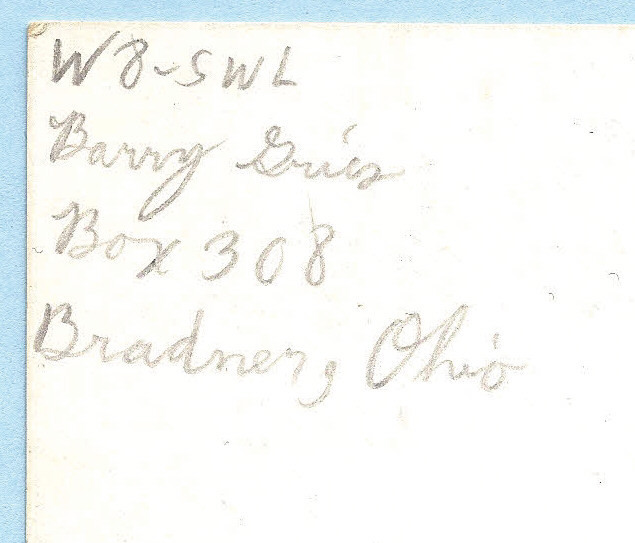 W8-SWL
Barry
Box 308
Bradner, Ohio